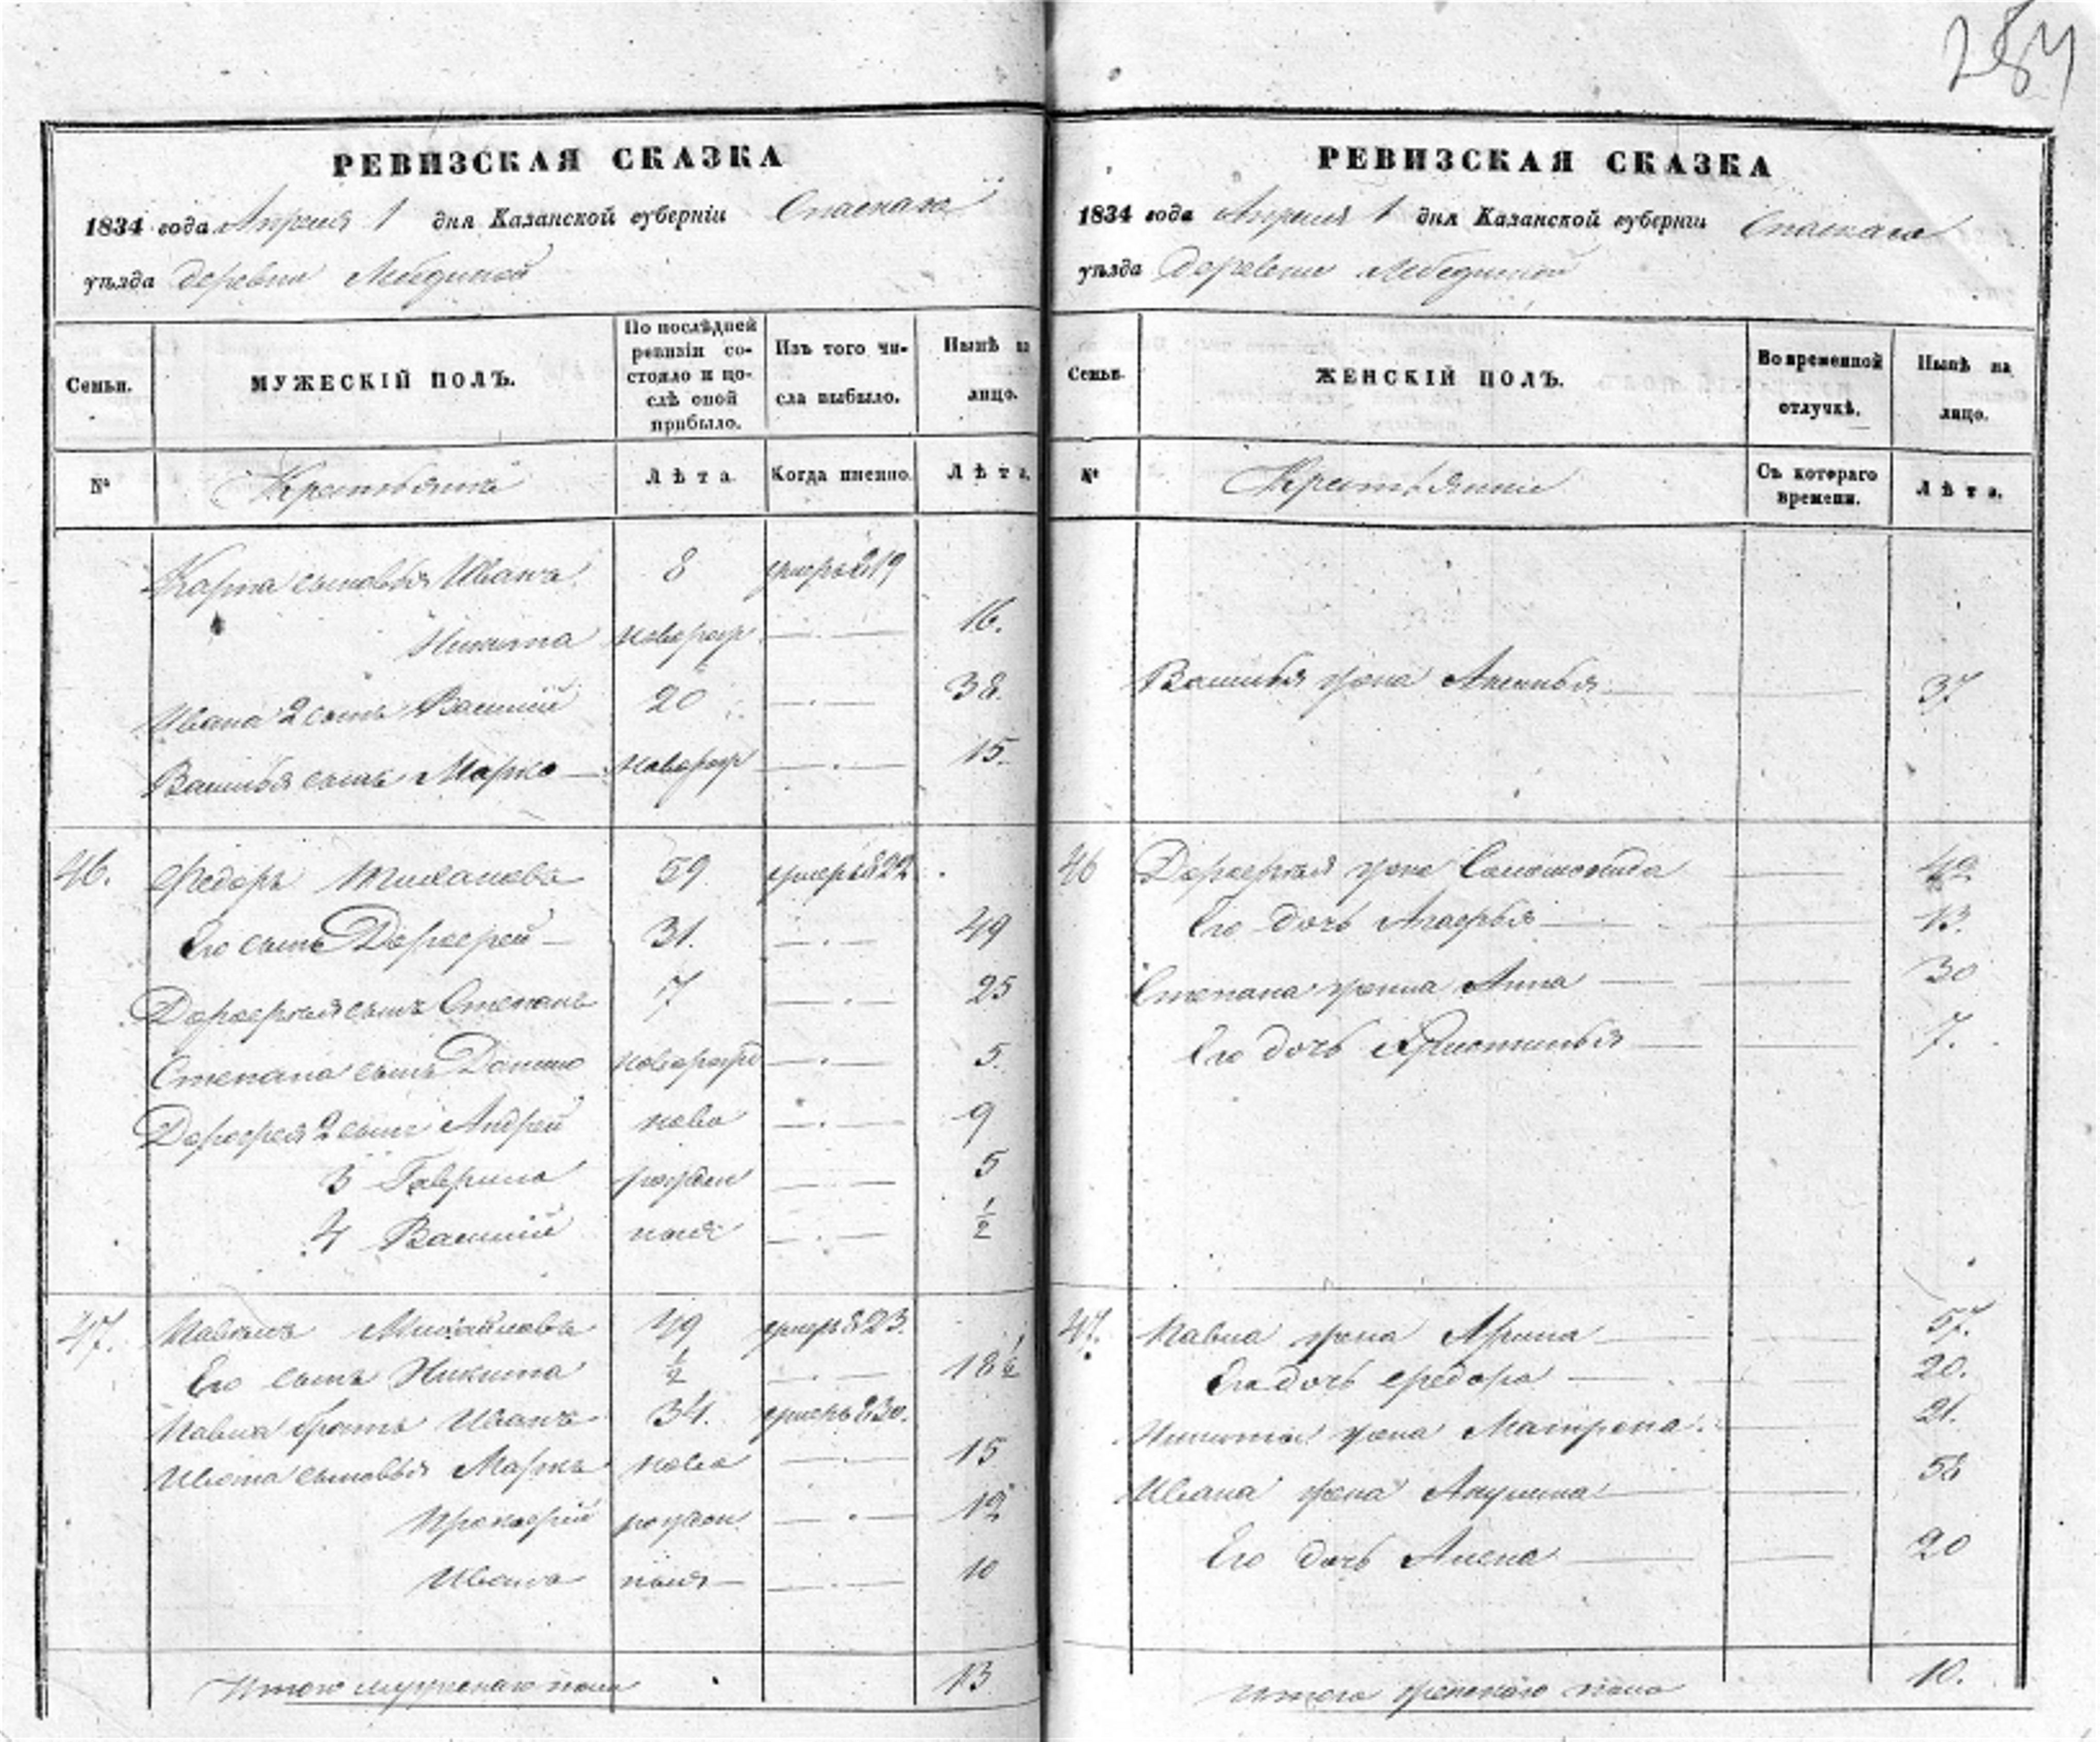 284
РЕВИЗСКАЯ СКАЗКА
1834 года Апреля 1 дня Казанской губерніи Спаскаго
уѣзда деревни Лебединой
Семьи. МУЖЕСКІЙ ПОЛЪ. По послѣдней ревизіи состояло и послѣ оной прибыло. Изъ того числа выбыло. Нынѣ на лицо.
№ Крестьянъ Лѣта. Когда именно. Лѣта.
Карпа сыновья Ивана 8 умеръ 819
Никита новорож 16.
Ивана 2 сынъ Василій 20 38.
Василья сынъ Марко новорож 15.
46. Федоръ 59 умеръ 822
Его сынъ Дорофей 31. 49
Дорофея сынъ Степанъ 7 25
Степана сынъ новорож 5.
Дорофея 2 сынъ Андрей ново 9
3 Гаврила рожден 5
4 Василій ныя ½
47. Павелъ Михайловъ 49 умеръ 823.
Его сынъ Никита ½ 18 ½
Павла братъ Иванъ 34. умеръ 830.
Ивана сыновья Маркъ ново 15
Прокофій рожден 12
Ивана ныя 10
Итого мужескаго пола 13
РЕВИЗСКАЯ СКАЗКА
1834 года Апреля 1 дня Казанской губерніи Спаскаго
уѣзда деревни Лебединой
Семьи. ЖЕНСКІЙ ПОЛЪ. Во временной отлучкѣ. Нынѣ на лицо.
№ Съ котораго времени. Лѣта.
Василья жена 37
46 Дорофея жена Соломонида 42
Его дочь 13.
Степана жена Анна 30
Его дочь 7.
47. Павла жена Арина 57.
Его дочь Федора 20.
Никиты жена Матрена 21.
Ивана жена Акулина 58
Его дочь Алена 20
Итого женскаго пола 10.